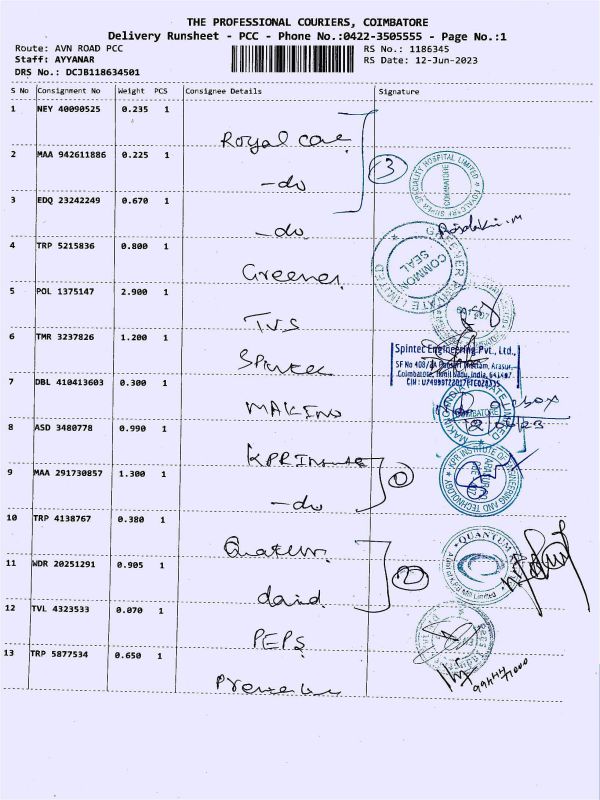 THE PROFESSIONAL COURIERS, COIMBATORE
Delivery Runsheet - PCC - Phone No.:0422-3505555 - Page No.:1
Route: AVN ROAD PCC
RS No.: 1186345
Staff: AYYANAR
RS Date: 12-Jun-2023
DRS No.: DCJB118634501
S No Consignment No Weight PCS Consignee Details Signature
1 NEY 40090525 0.235 1
Royal care
2 MAA 942611886 0.225 1
-do
3
3 EDQ 23242249 0.670 1
-do
4 TRP 5215836 0.800 1
Greener
COMMON SEAL
5 POL 1375147 2.900 1
TVS
6 TMR 3237826 1.200 1
Spintec
Spintec Engineering Pvt., Ltd.,
Coimbatore, Tamil Nadu, India, 641407.
7 DBL 410413603 0.300 1
MAKINO
8 ASD 3480778 0.990 1
KPR Institute
KPR INSTITUTE OF ENGINEERING AND TECHNOLOGY
9 MAA 291730857 1.300 1
-do
10 TRP 4138767 0.380 1
Quantum
QUANTUM
11 WDR 20251291 0.905 1
2
12 TVL 4323533 0.070 1
PEPS
13 TRP 5877534 0.650 1